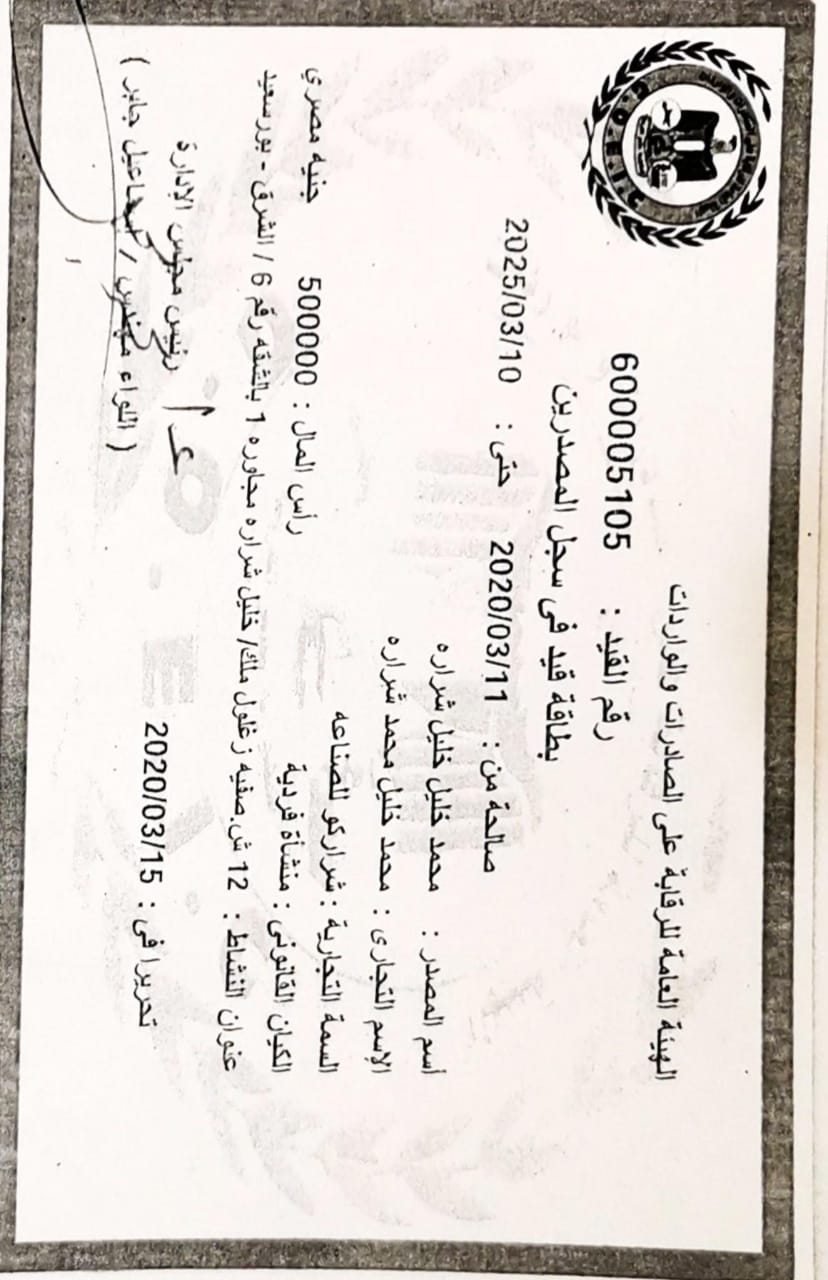 الهيئة العامة للرقابة على الصادرات والواردات
رقم القيد : 600005105
بطاقة قيد فى سجل المصدرين
صالحة من : 2020/03/11 حتى : 2025/03/10
أسم المصدر : محمد خليل شراره
الإسم التجارى : محمد خليل محمد شراره
السمة التجارية : شراركو للصناعه
رأس المال : 500000 جنية مصري
الكيان القانونى : منشأة فردية
عنوان النشاط : 12 ش.صفيه زغلول ملك/ خليل شراره مجاوره 1 بالشقه رقم 6 / الشرق - بورسعيد
رئيس مجلس الإدارة
تحريرا فى : 2020/03/15
( اللواء مهندس / إسماعيل جابر )
G.O.E.I.C